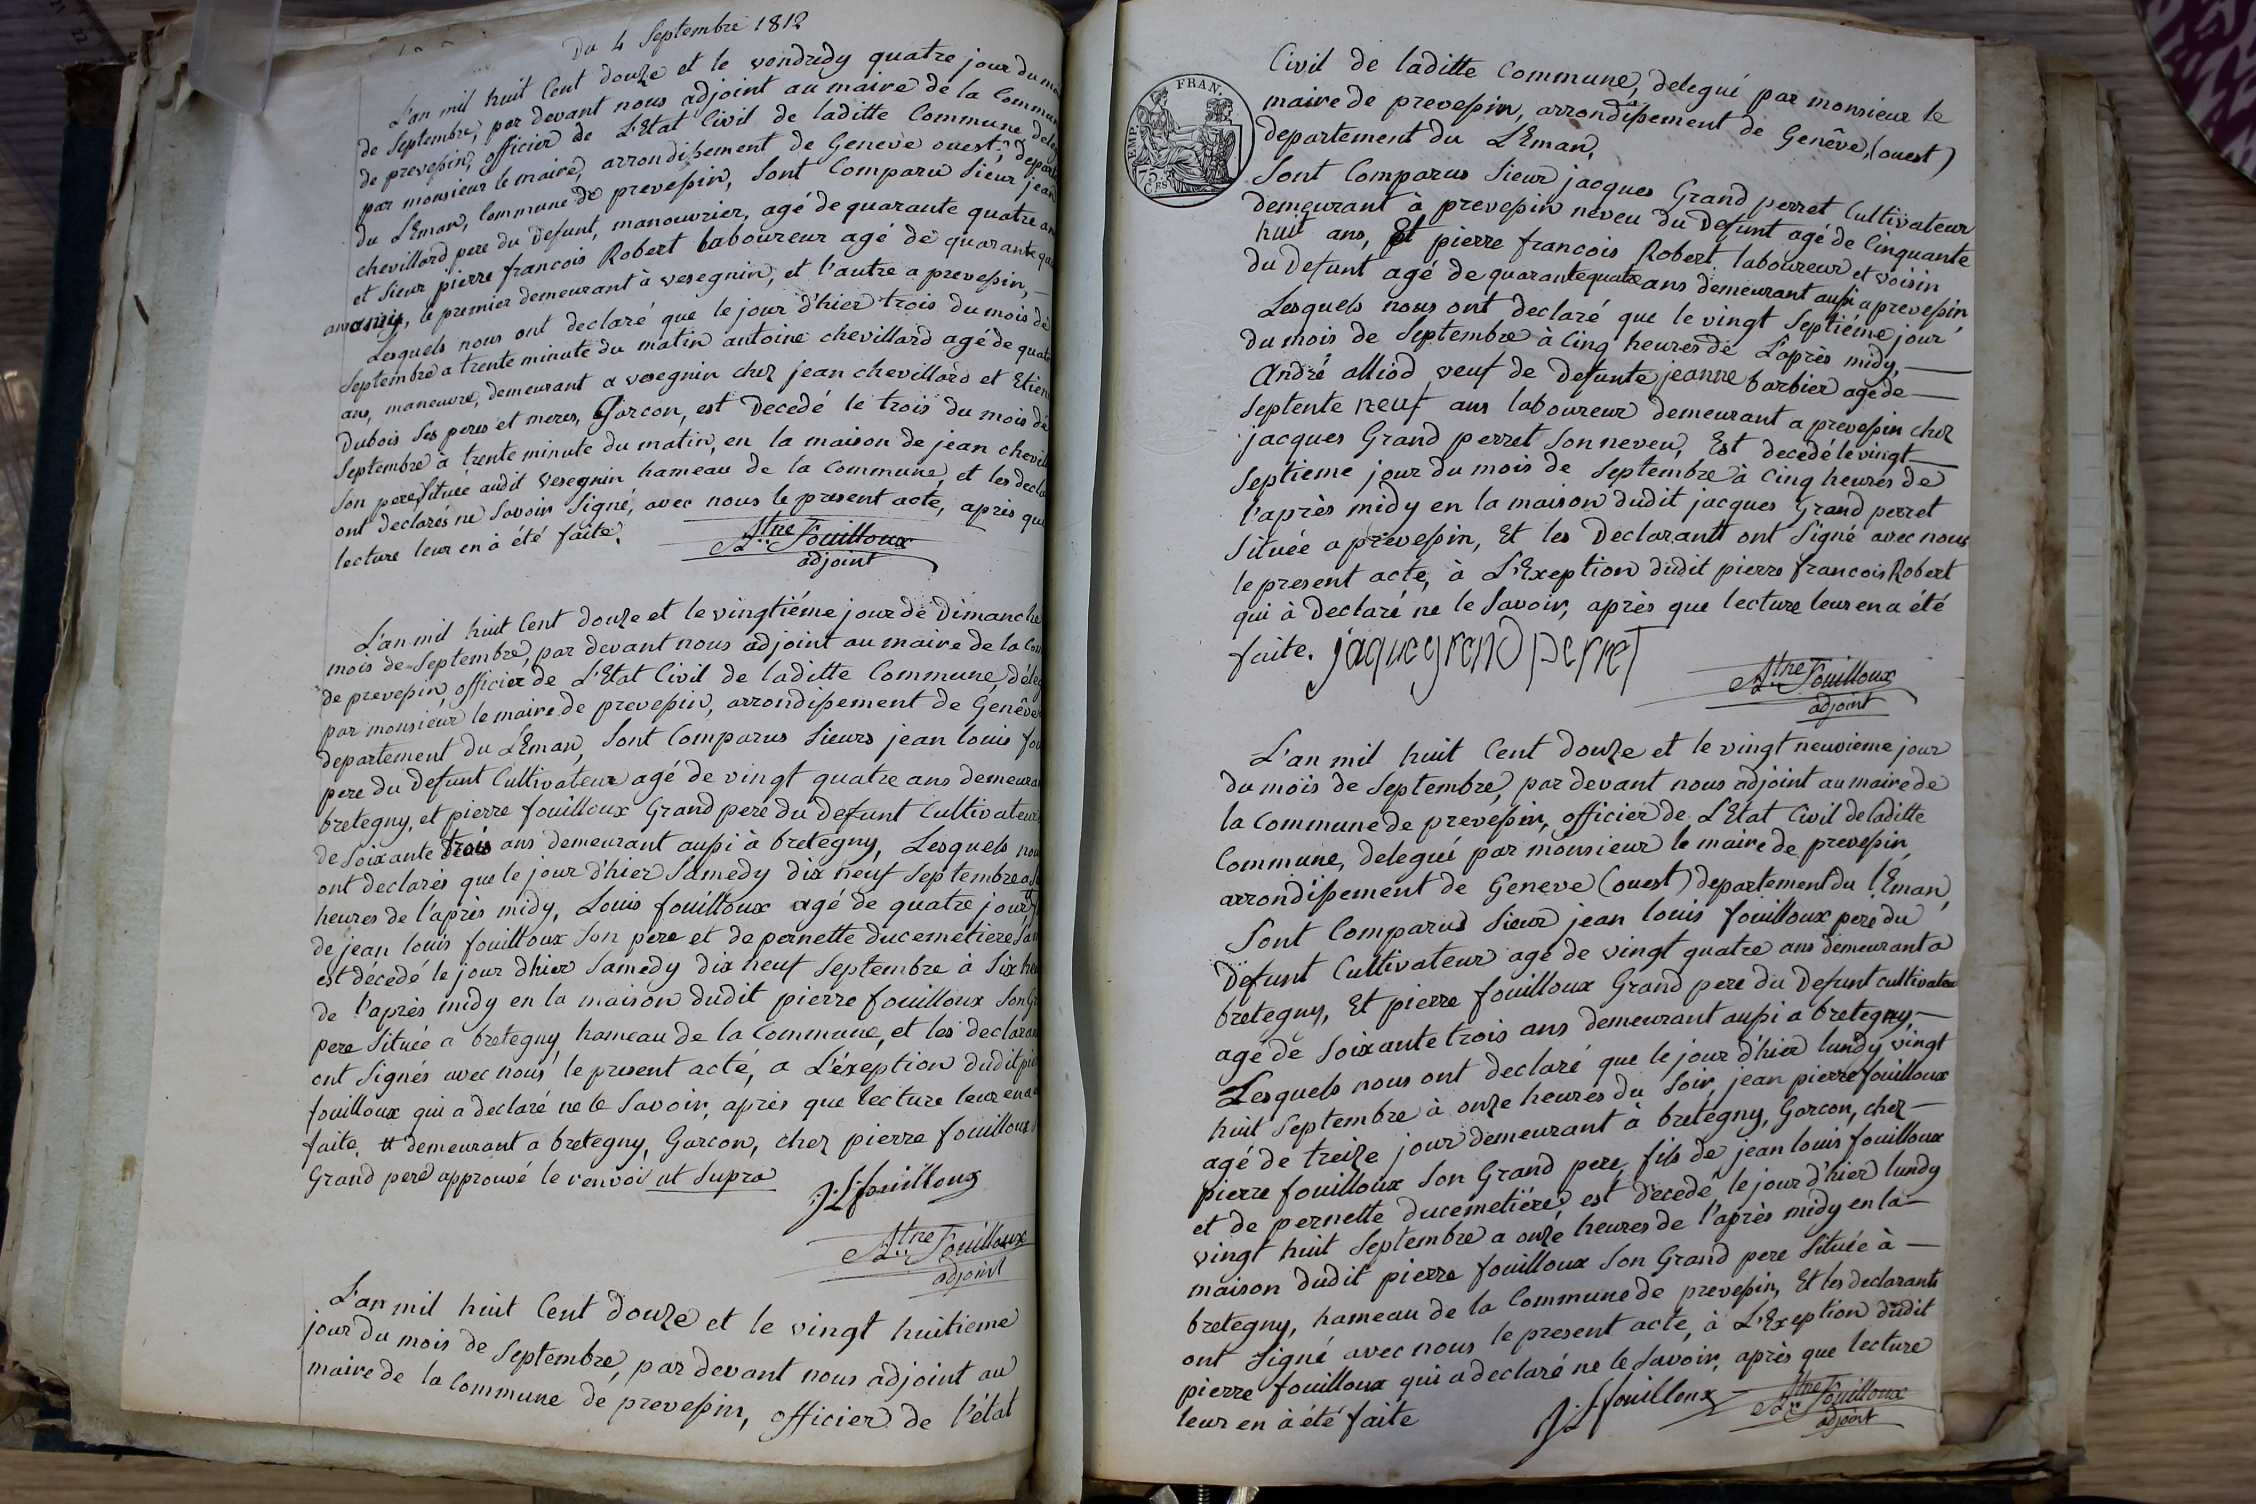 Du 4 Septembre 1812
L'an mil huit Cent douze et le vendredy quatre jour du mois
de Septembre, par devant nous adjoint au maire de la Commune
de prevessin, officier de L'Etat Civil de laditte Commune, delegué
par monsieur le maire, arrondissement de Geneve ouest, depart
du L'Eman, Commune de prevessin, Sont Comparu Sieur jean
chevillard pere du Defunt, manouvrier, agé de quarante quatre ans
et Sieur pierre francois Robert laboureur agé de quarante qua
ans, le premier demeurant à vesegnin, et l'autre a prevessin,
Lesquels nous ont declaré que le jour d'hier trois du mois de
Septembre a trente minute du matin antoine chevillard agé de quatre
ans, maneuvre, demeurant a vesegnin chez jean chevillard et Etien
Dubois Ses peres et meres, Garcon, est Decedé le trois du mois de
Septembre à trente minute du matin, en la maison de jean chevill
Son pere, Située audit vesegnin hameau de la Commune, et les decla
ont declarés ne Savoir Signé, avec nous le present acte, après que
lecture leur en à été faite.
Fouilloux
adjoint
L'an mil huit Cent douze et le vingtiéme jour de Dimanche
mois de Septembre, par devant nous adjoint au maire de la Com
de prevessin, officier de L'Etat Civil de laditte Commune, déleg
par monsieur le maire de prevessin, arrondissement de Genève
departement du L'Eman, Sont Comparus Sieurs jean louis fou
pere du Defunt Cultivateur agé de vingt quatre ans demeurant
bretegny, et pierre fouilloux Grand pere du Defunt Cultivateur
de Soixante trois ans demeurant aussi à bretegny, Lesquels nous
ont declarés que le jour d'hier Samedy dix neuf Septembre a Six
heures de l'après midy, Louis fouilloux agé de quatre jour
de jean louis fouilloux Son pere et de pernette ducemetiere
est décedé le jour d'hier Samedy dix neuf Septembre à Six heu
de l'après midy en la maison dudit pierre fouilloux Son Gr
pere Située a bretegny hameau de la Commune, et les declarant
ont Signés avec nous le present acté, a L'éxeption dudit pier
fouilloux qui a declaré ne le Savoir, après que lecture leur en a
faite. # demeurant a bretegny, Garcon, chez pierre fouilloux
Grand pere approuvé le renvoi ut Supra
J. L. fouilloux
Fouilloux
adjoint
L'an mil huit Cent douze et le vingt huitieme
jour du mois de Septembre, par devant nous adjoint au
maire de la Commune de prevessin, officier de l'état
EMP. FRAN.
75 Ces
Civil de laditte Commune, delegué par monsieur le
maire de prevessin, arrondissement de Genêve, (ouest)
departement du L'Eman,
Sont Comparus Sieur jacques Grand perret Cultivateur
demeurant à prevessin neveu du Defunt agé de Cinquante
huit ans, Et pierre francois Robert laboureur et voisin
du Defunt agé de quarante quatre ans demeurant aussi a prevessin,
Lesquels nous ont declaré que le vingt Septiéme jour
du mois de Septembre à Cinq heures de L'après midy,
André alliod veuf de Defunte jeanne barbier agé de
Septente neuf ans laboureur demeurant a prevessin chez
jacques Grand perret Son neveu, Est decedé le vingt
Septieme jour du mois de Septembre à Cinq heures de
l'après midy en la maison dudit jacques Grand perret
Située a prevessin, Et les Declarants ont Signé avec nous
le present acte, à L'Exeption dudit pierre francois Robert
qui à declaré ne le Savoir, après que lecture leur en a été
faite. jaque grand perret
Fouilloux
adjoint
L'an mil huit Cent douze et le vingt neuvieme jour
du mois de Septembre, par devant nous adjoint au maire de
la Commune de prevessin, officier de L'Etat Civil de laditte
Commune, delegué par monsieur le maire de prevessin,
arrondissement de Geneve (ouest) departement du l'Eman,
Sont Comparus Sieur jean louis fouilloux pere du
Defunt Cultivateur agé de vingt quatre ans demeurant a
bretegny, Et pierre fouilloux Grand pere du Defunt cultivateur
agé de Soixante trois ans demeurant aussi a bretegny,
Lesquels nous ont declaré que le jour d'hier lundy vingt
huit Septembre à onze heures du Soir, jean pierre fouilloux
agé de treize jour demeurant à bretegny, Garcon, chez
pierre fouilloux Son Grand pere, fils de jean louis fouilloux
et de pernette ducemetiére est decedé le jour d'hier lundy
vingt huit Septembre a onze heures de l'après midy en la
maison dudit pierre fouilloux Son Grand pere Située à
bretegny, hameau de la Commune de prevessin, Et les declarants
ont Signé avec nous le present acte, à L'Exeption dudit
pierre fouilloux qui a declaré ne le Savoir, après que lecture
leur en à été faite
J. L. fouilloux
Fouilloux
adjoint